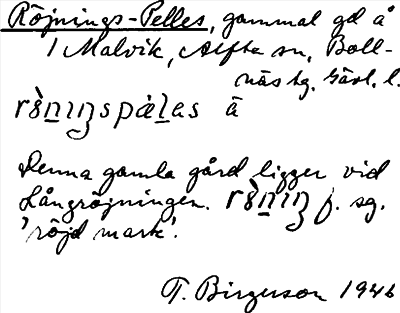 Röjnings-Pelles, gammal gd å
1 Malvik, Alfta sn, Boll-
näs tg. Gävl. l.
rö̀nıŋspàlas å
Denna gamla gård ligger vid
Långröjningen. rö̀nıŋ f. sg.
'röjd mark'.
T. Birgerson 1946